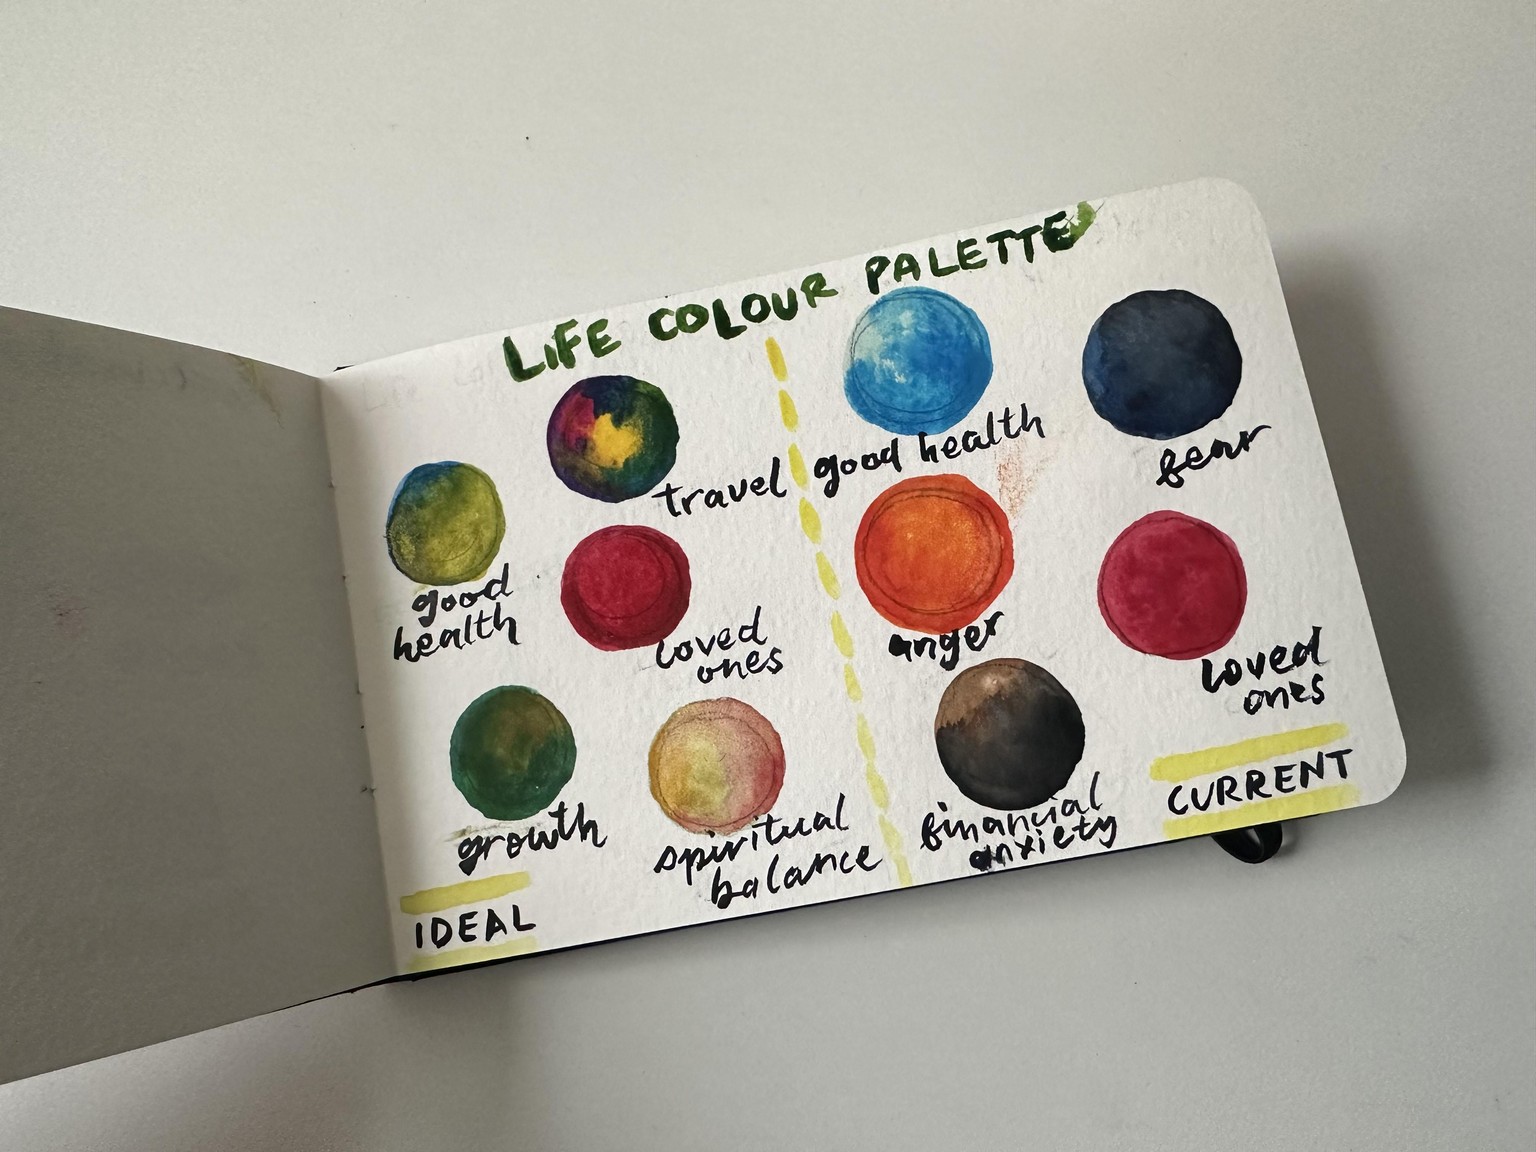 LIFE COLOUR PALETTE
travel
good
health
loved
ones
growth
spiritual
balance
IDEAL
good health
fear
anger
loved
ones
financial
anxiety
CURRENT